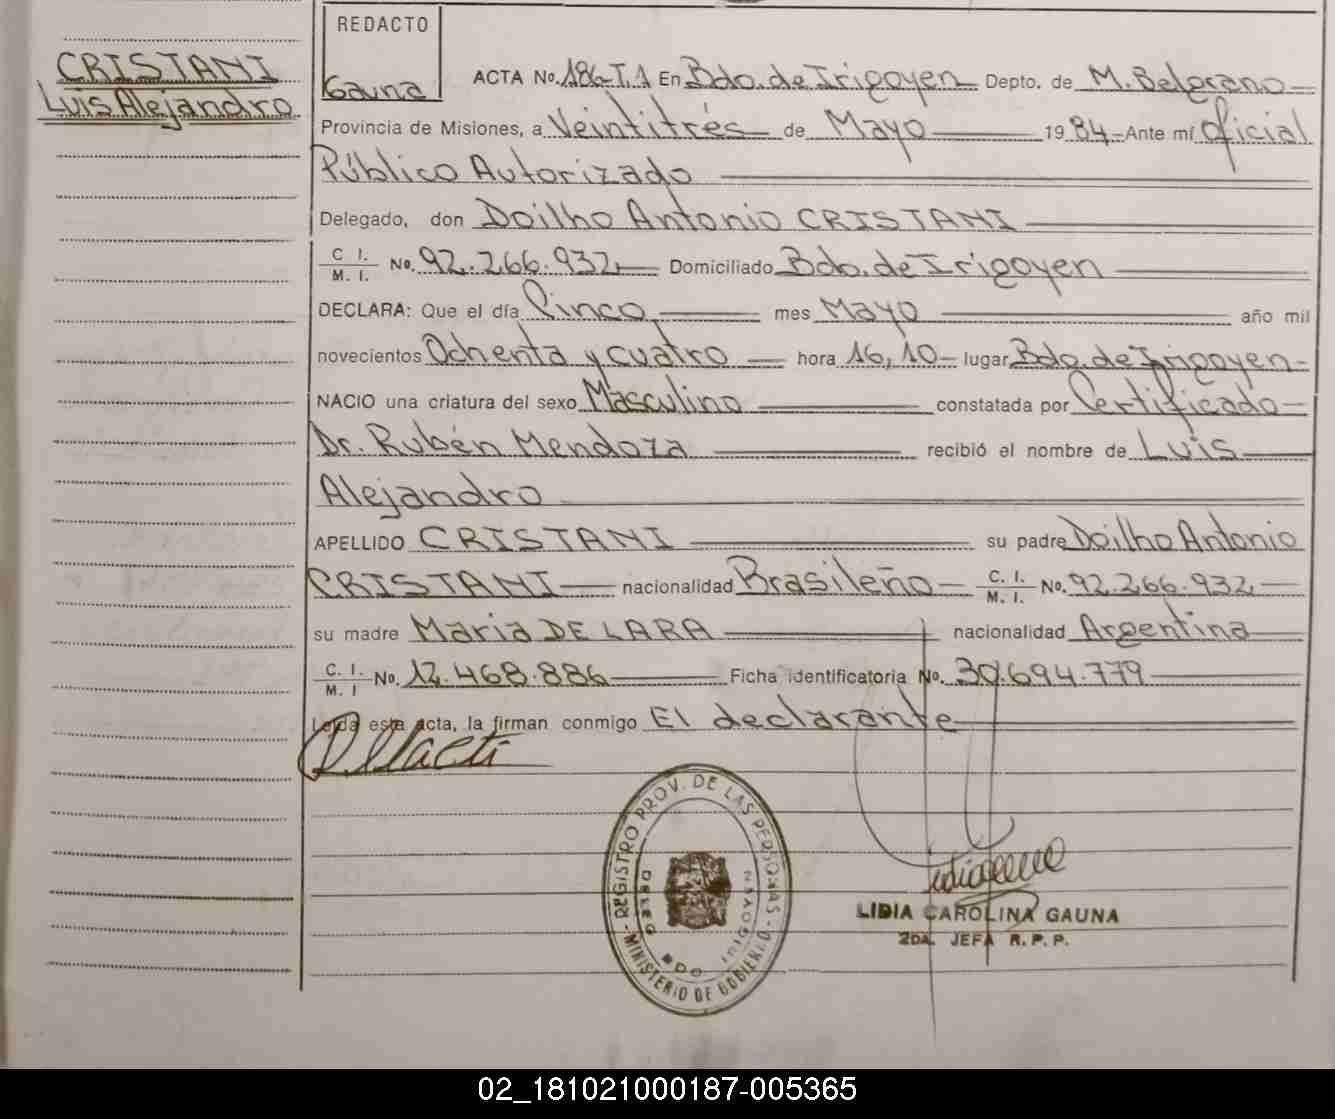 CRISTANI
Luis Alejandro
REDACTO
Gauna
ACTA No. 186-T.1 En Bdo. de Irigoyen Depto. de M. Belgrano
Provincia de Misiones, a Veintitrés de Mayo 1984 Ante mí Oficial
Público Autorizado
Delegado, don Doilho Antonio CRISTANI
C. I.
M. I. No. 92.266.932 Domiciliado Bdo. de Irigoyen
DECLARA: Que el día Cinco mes Mayo año mil
novecientos Ochenta y cuatro hora 16,10 lugar Bdo. de Irigoyen
NACIO una criatura del sexo Masculino constatada por Certificado
Dr. Rubén Mendoza recibió el nombre de Luis
Alejandro
APELLIDO CRISTANI su padre Doilho Antonio
CRISTANI nacionalidad Brasileño C. I. M. I. No. 92.266.932
su madre Maria DE LARA nacionalidad Argentina
C. I.
M. I No. 12.468.886 Ficha identificatoria No. 30.694.779
Leída esta acta, la firman conmigo El declarante
REGISTRO PROV. DE LAS PERSONAS
MINISTERIO DE GOBIERNO
DELEG BDO IRIGOYEN
LIDIA CAROLINA GAUNA
2DA. JEFA R. P. P.
02_181021000187-005365